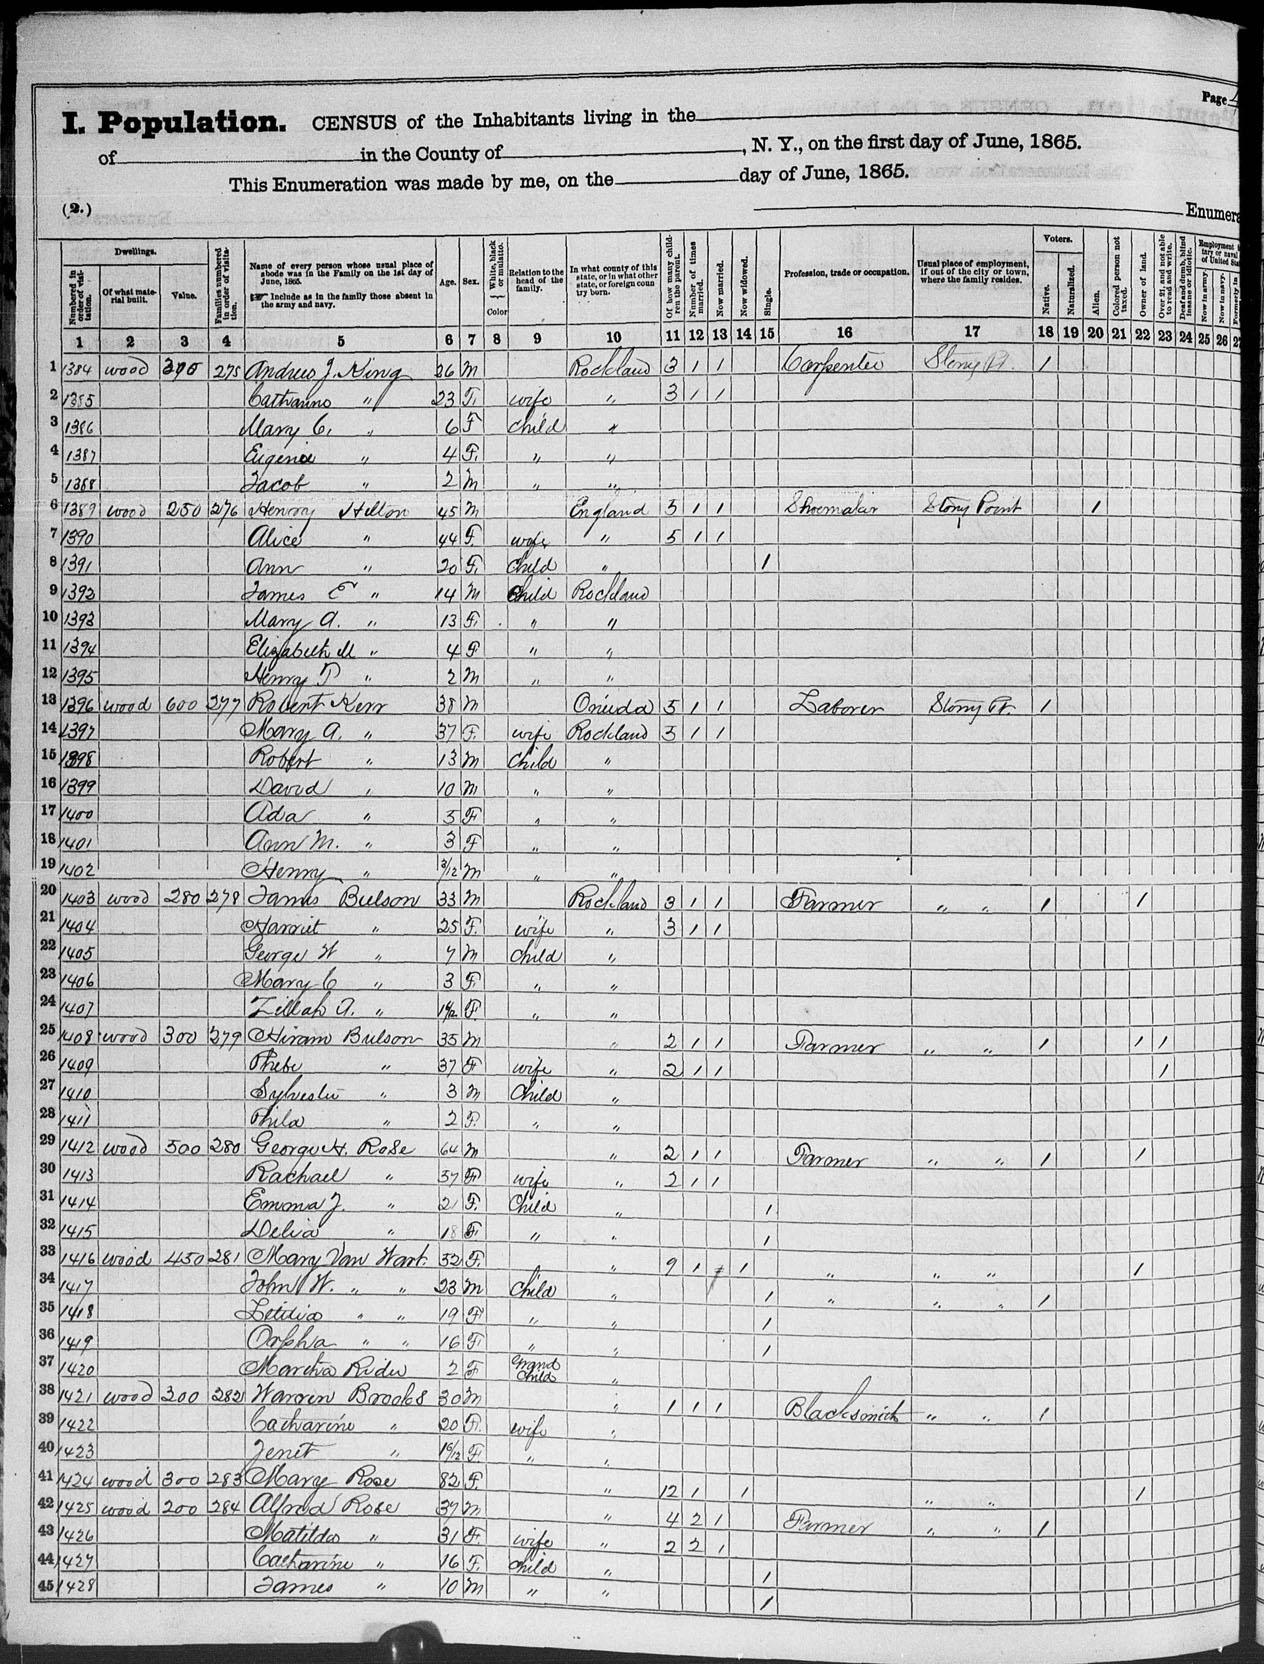 Page
I. Population. CENSUS of the Inhabitants living in the
of in the County of , N. Y., on the first day of June, 1865.
This Enumeration was made by me, on the day of June, 1865.
(2.) Enumera
Numbered in order of visitation. Dwellings. Of what material built. Value. Families numbered in order of visitation. Name of every person whose usual place of abode was in the Family on the 1st day of June, 1865. Include as in the family those absent in the army and navy. Age. Sex. White, black or mulatto. Color Relation to the head of the family. In what county of this state, or in what other state, or foreign country born. Of how many children the parent. Number of times married. Now married. Now widowed. Single. Profession, trade or occupation. Usual place of employment, if out of the city or town, where the family resides. Voters. Native. Naturalized. Alien. Colored person not taxed. Owner of land. Over 21, and not able to read and write. Deaf and dumb, blind insane or idiotic. Now in army. Now in navy. Formerly in
1 2 3 4 5 6 7 8 9 10 11 12 13 14 15 16 17 18 19 20 21 22 23 24 25 26 27
1 1384 wood 275 Andrew J. King 26 M Rockland 3 1 1 Carpenter Stony Pt. 1
2 1385 Catharine " 23 F. wife " 3 1 1
3 1386 Mary C. " 6 F child "
4 1387 Eugenia " 4 F. " "
5 1388 Jacob " 2 M " "
6 1389 wood 250 276 Henry Hilton 45 M England 5 1 1 Shoemaker Stony Point 1
7 1390 Alice " 44 F. wife " 5 1 1
8 1391 Ann " 20 F. Child " 1
9 1392 James E " 14 M Child Rockland
10 1393 Mary A. " 13 F. " "
11 1394 Elizabeth M " 4 F " "
12 1395 Henry " 2 M " "
13 1396 wood 600 277 Robert Kerr 38 M Oneida 5 1 1 Laborer Stony Pt. 1
14 1397 Mary A. " 37 F. wife Rockland 5 1 1
15 1398 Robert " 13 M Child "
16 1399 David " 10 M " "
17 1400 Ada " 5 F " "
18 1401 Ann M. " 3 F " "
19 1402 Henry " 3/12 M " "
20 1403 wood 280 278 James Bulson 33 M Rockland 3 1 1 Farmer " " 1 1
21 1404 Harriet " 25 F. wife " 3 1 1
22 1405 George W " 7 M Child "
23 1406 Mary C " 3 F " "
24 1407 Zillah A. " F. " "
25 1408 wood 300 279 Hiram Bulson 35 M " 2 1 1 Farmer " " 1 1 1
26 1409 Phebe " 37 F wife " 2 1 1 1
27 1410 Sylvester " 3 M Child "
28 1411 Phila " 2 F. " "
29 1412 wood 500 280 George H. Rose 64 M " 2 1 1 Farmer " " 1 1
30 1413 Rachael " 57 F wife " 2 1 1
31 1414 Emma J. " 21 F. Child " 1
32 1415 Delia " 18 F " " 1
33 1416 wood 450 281 Mary Van Wart. 52 F. " 9 1 1 " " " 1
34 1417 John W. " " 23 M Child " 1 " " " 1
35 1418 Letitia " " 19 F " " 1
36 1419 Orpha " " 16 F. " " 1
37 1420 Martha Rider 2 F Grand Child "
38 1421 wood 200 282 Warren Brooks 30 M " 1 1 1 Blacksmith " " 1
39 1422 Catharine " 20 F. wife "
40 1423 Jenet " F. " "
41 1424 wood 300 283 Mary Rose 82 F. " 12 1 1 " " 1
42 1425 wood 200 284 Alfred Rose 37 M " 4 2 1 Farmer " " 1
43 1426 Matilda " 31 F. wife " 2 2 1
44 1427 Catharine " 16 F. child " 1
45 1428 James " 10 M " " 1